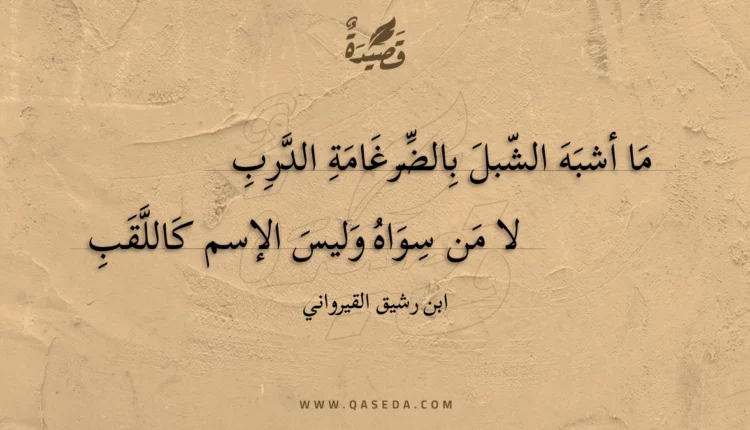 قَصِيدَةٌ
مَا أشبَهَ الشّبلَ بِالضِّرغَامَةِ الدَّرِبِ
لا مَن سِوَاهُ وَليسَ الإسم كَاللَّقَبِ
ابن رشيق القيرواني
WWW.QASEDA.COM